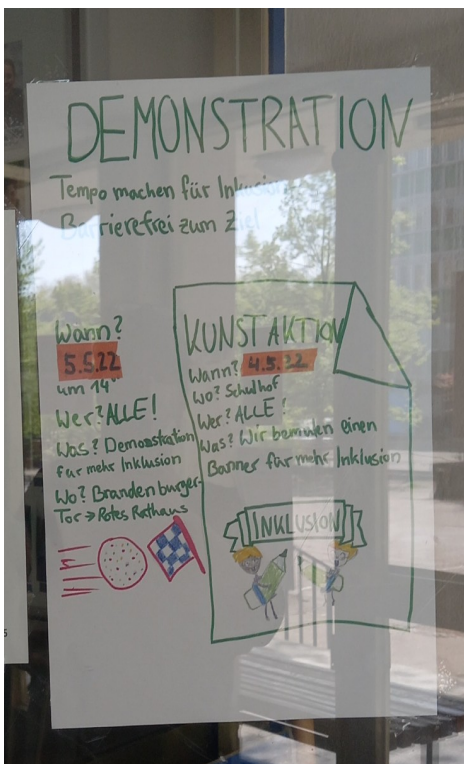 DEMONSTRATION
Tempo machen für Inklusion
Barrierefrei zum Ziel
Wann?
5.5.22
um 14⁰⁰
Wer? ALLE!
Was? Demonstration
für mehr Inklusion
Wo? Brandenburger-
Tor → Rotes Rathaus
KUNSTAKTION
Wann? 4.5.22
Wo? Schulhof
Wer? ALLE!
Was? Wir bemalen einen
Banner für mehr Inklusion
INKLUSION